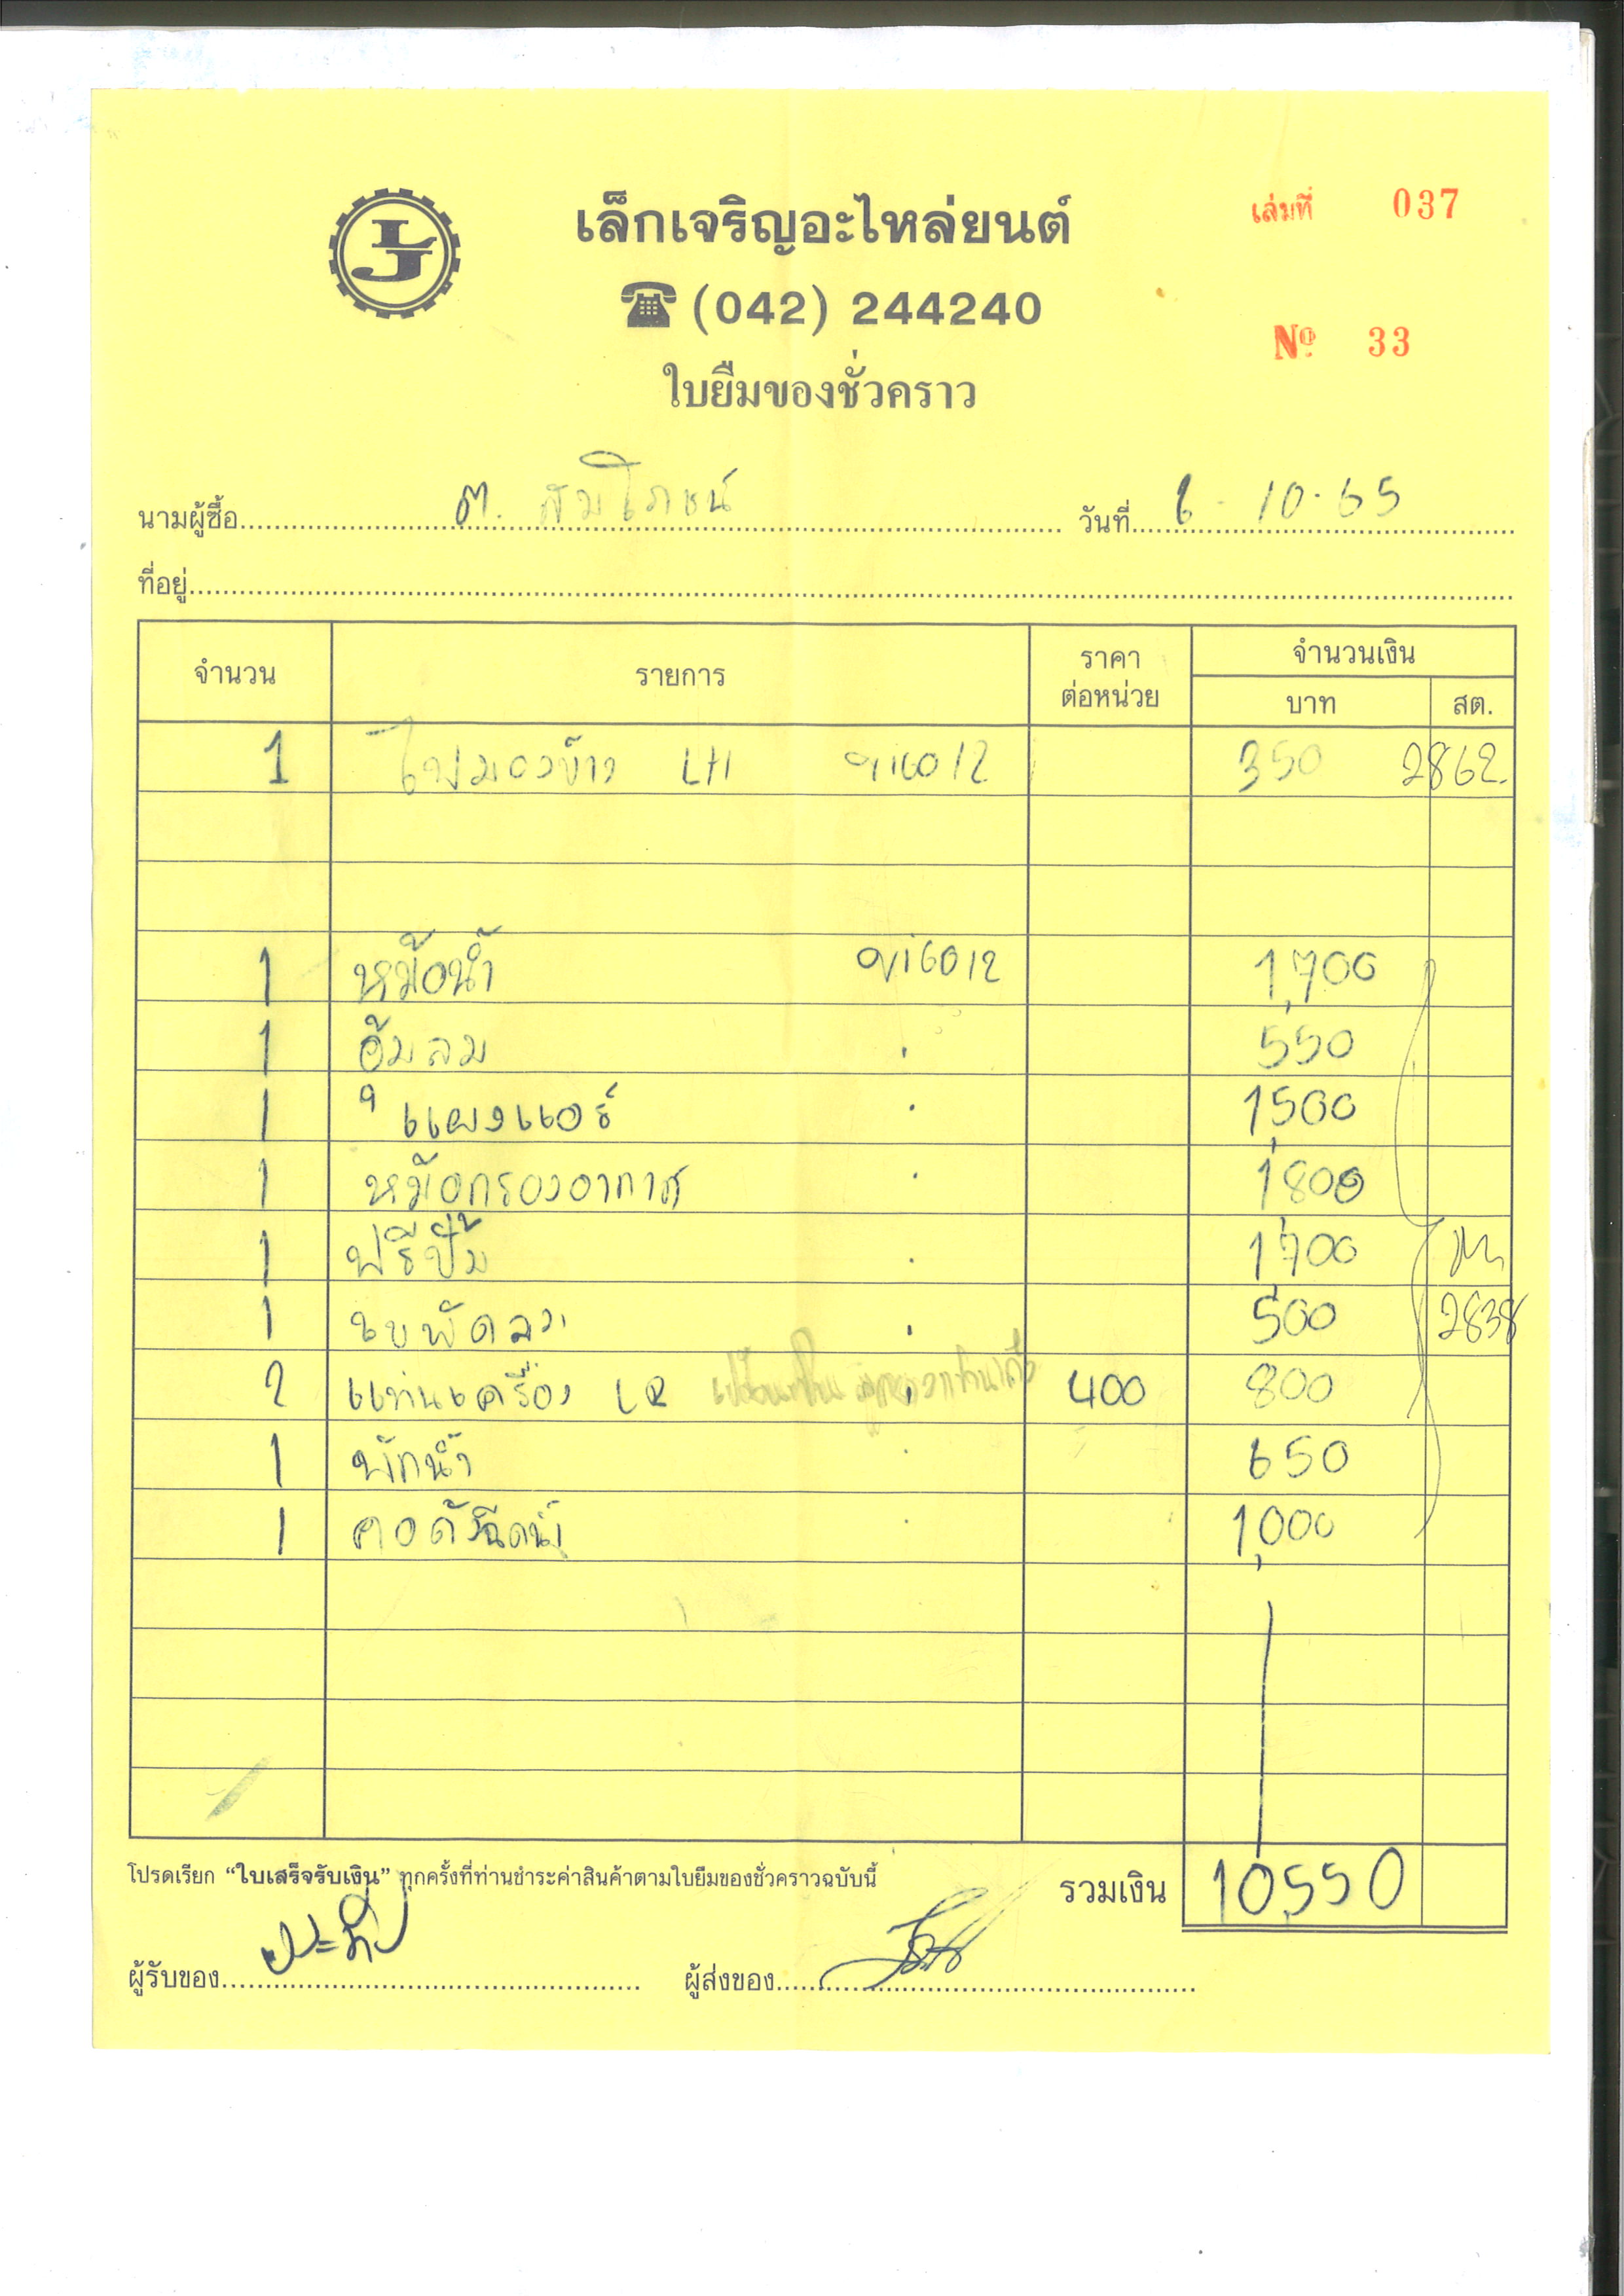 เล็กเจริญอะไหล่ยนต์
เล่มที่ 037
(042) 244240
Nº 33
ใบยืมของชั่วคราว
นามผู้ซื้อ ต. สัมโภชน์ วันที่ 6-10-65
ที่อยู่
จำนวน รายการ ราคาต่อหน่วย จำนวนเงิน
บาท สต.
1 ไฟมองข้าง LH วีโก้12 350 2862
1 หม้อน้ำ วีโก้12 1,700
1 อุ้มลม 550
1 " แผงแอร์ 1,500
1 หม้อกรองอากาศ 1,800
1 ฟรีปั๊ม 1,700
1 ใบพัดลม 500 2838
2 แท่นเครื่อง LR 400 800
1 พักน้ำ 650
1 คอถังฉีดน้ำ 1,000
โปรดเรียก “ใบเสร็จรับเงิน” ทุกครั้งที่ท่านชำระค่าสินค้าตามใบยืมของชั่วคราวฉบับนี้
รวมเงิน 10,550
ผู้รับของ ผู้ส่งของ